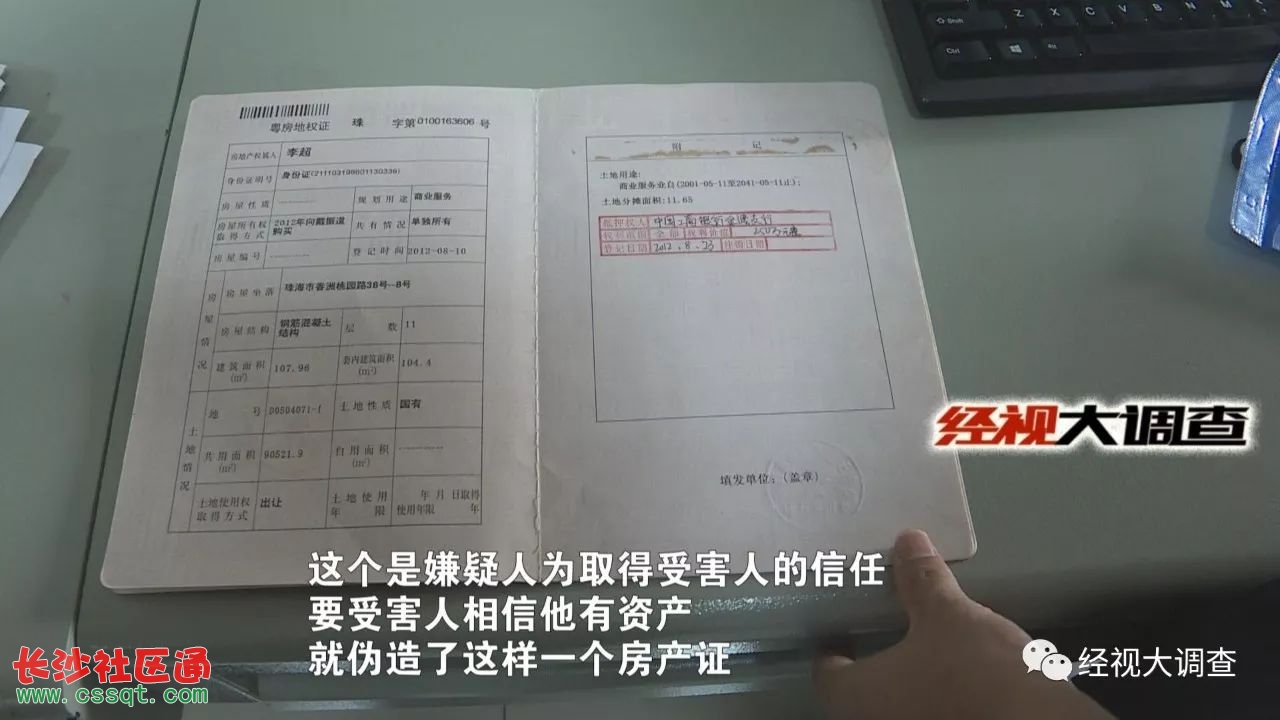 粤房地权证 珠 字第0100163606 号
房地产权属人 李超
身份证明号 身份证(211103198601130339)
房屋性质 ---------- 规划用途 商业服务
房屋所有权取得方式 2012年向戴振道购买 共有情况 单独所有
房屋编号 ---------- 登记时间 2012-08-10
房屋情况
房屋坐落 珠海市香洲桃园路38号--8号
房屋结构 钢筋混凝土结构 层数 11
建筑面积(m²) 107.96 套内建筑面积(m²) 104.4
土地情况
地号 D0504071-f 土地性质 国有
共用面积(m²) 90521.9 自用面积(m²) ----------
土地使用权取得方式 出让 土地使用年限 年月日取得使用年限 年
附 记
土地用途:
商业服务业自(2001-05-11至2041-05-11止);
土地分摊面积:11.65
抵押权人 中国工商银行
全部 权利价值
登记日期 2012.8.23 注销日期
填发单位:(盖章)
Shift Z X C V B N M
Ctrl Alt
经视大调查
这个是嫌疑人为取得受害人的信任
要受害人相信他有资产
就伪造了这样一个房产证
长沙社区通
www.cssqt.com
经视大调查